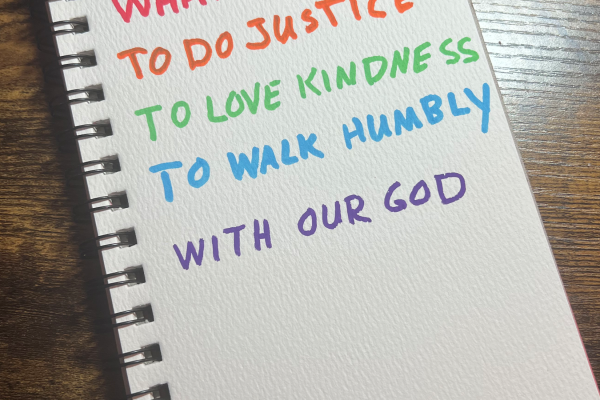 TO DO JUSTICE
TO LOVE KINDNESS
TO WALK HUMBLY
WITH OUR GOD